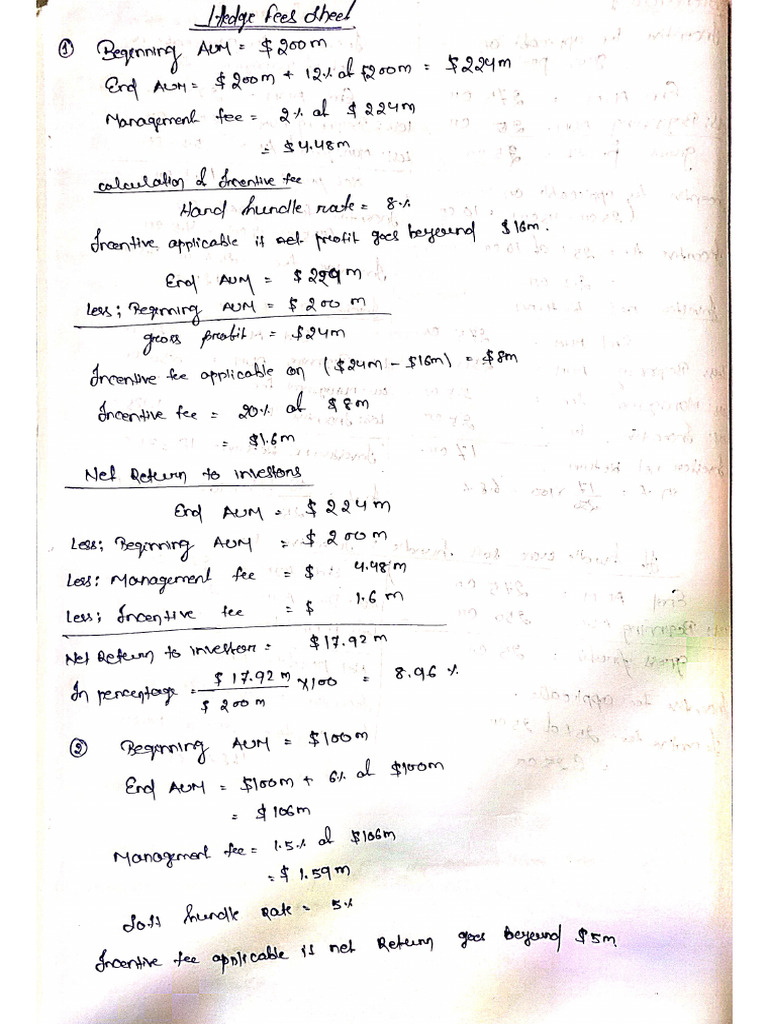 Hedge fees sheet
① Beginning AUM = $200m
End AUM = $200m + 12% of $200m = $224m
Management fee = 2% of $224m
= $4.48m
calculation of Incentive fee
Hard hundle rate = 8%
Incentive applicable if net profit goes beyeound $16m.
End AUM = $224m
Less; Beginning AUM = $200m
gross profit = $24m
Incentive fee applicable on ($24m - $16m) = $8m
Incentive fee = 20% of $8m
= $1.6m
Net Return to investors
End AUM = $224m
Less; Beginning AUM = $200m
Less: Management fee = $ 4.48m
Less; Incentive fee = $ 1.6m
Net Return to investor = $17.92m
In percentage = $17.92m / $200m ×100 = 8.96%
② Beginning AUM = $100m
End AUM = $100m + 6% of $100m
= $106m
Management fee = 1.5% of $106m
= $1.59m
Soft hundle Rate = 5%
Incentive fee applicable if net Return goes beyeound $5m